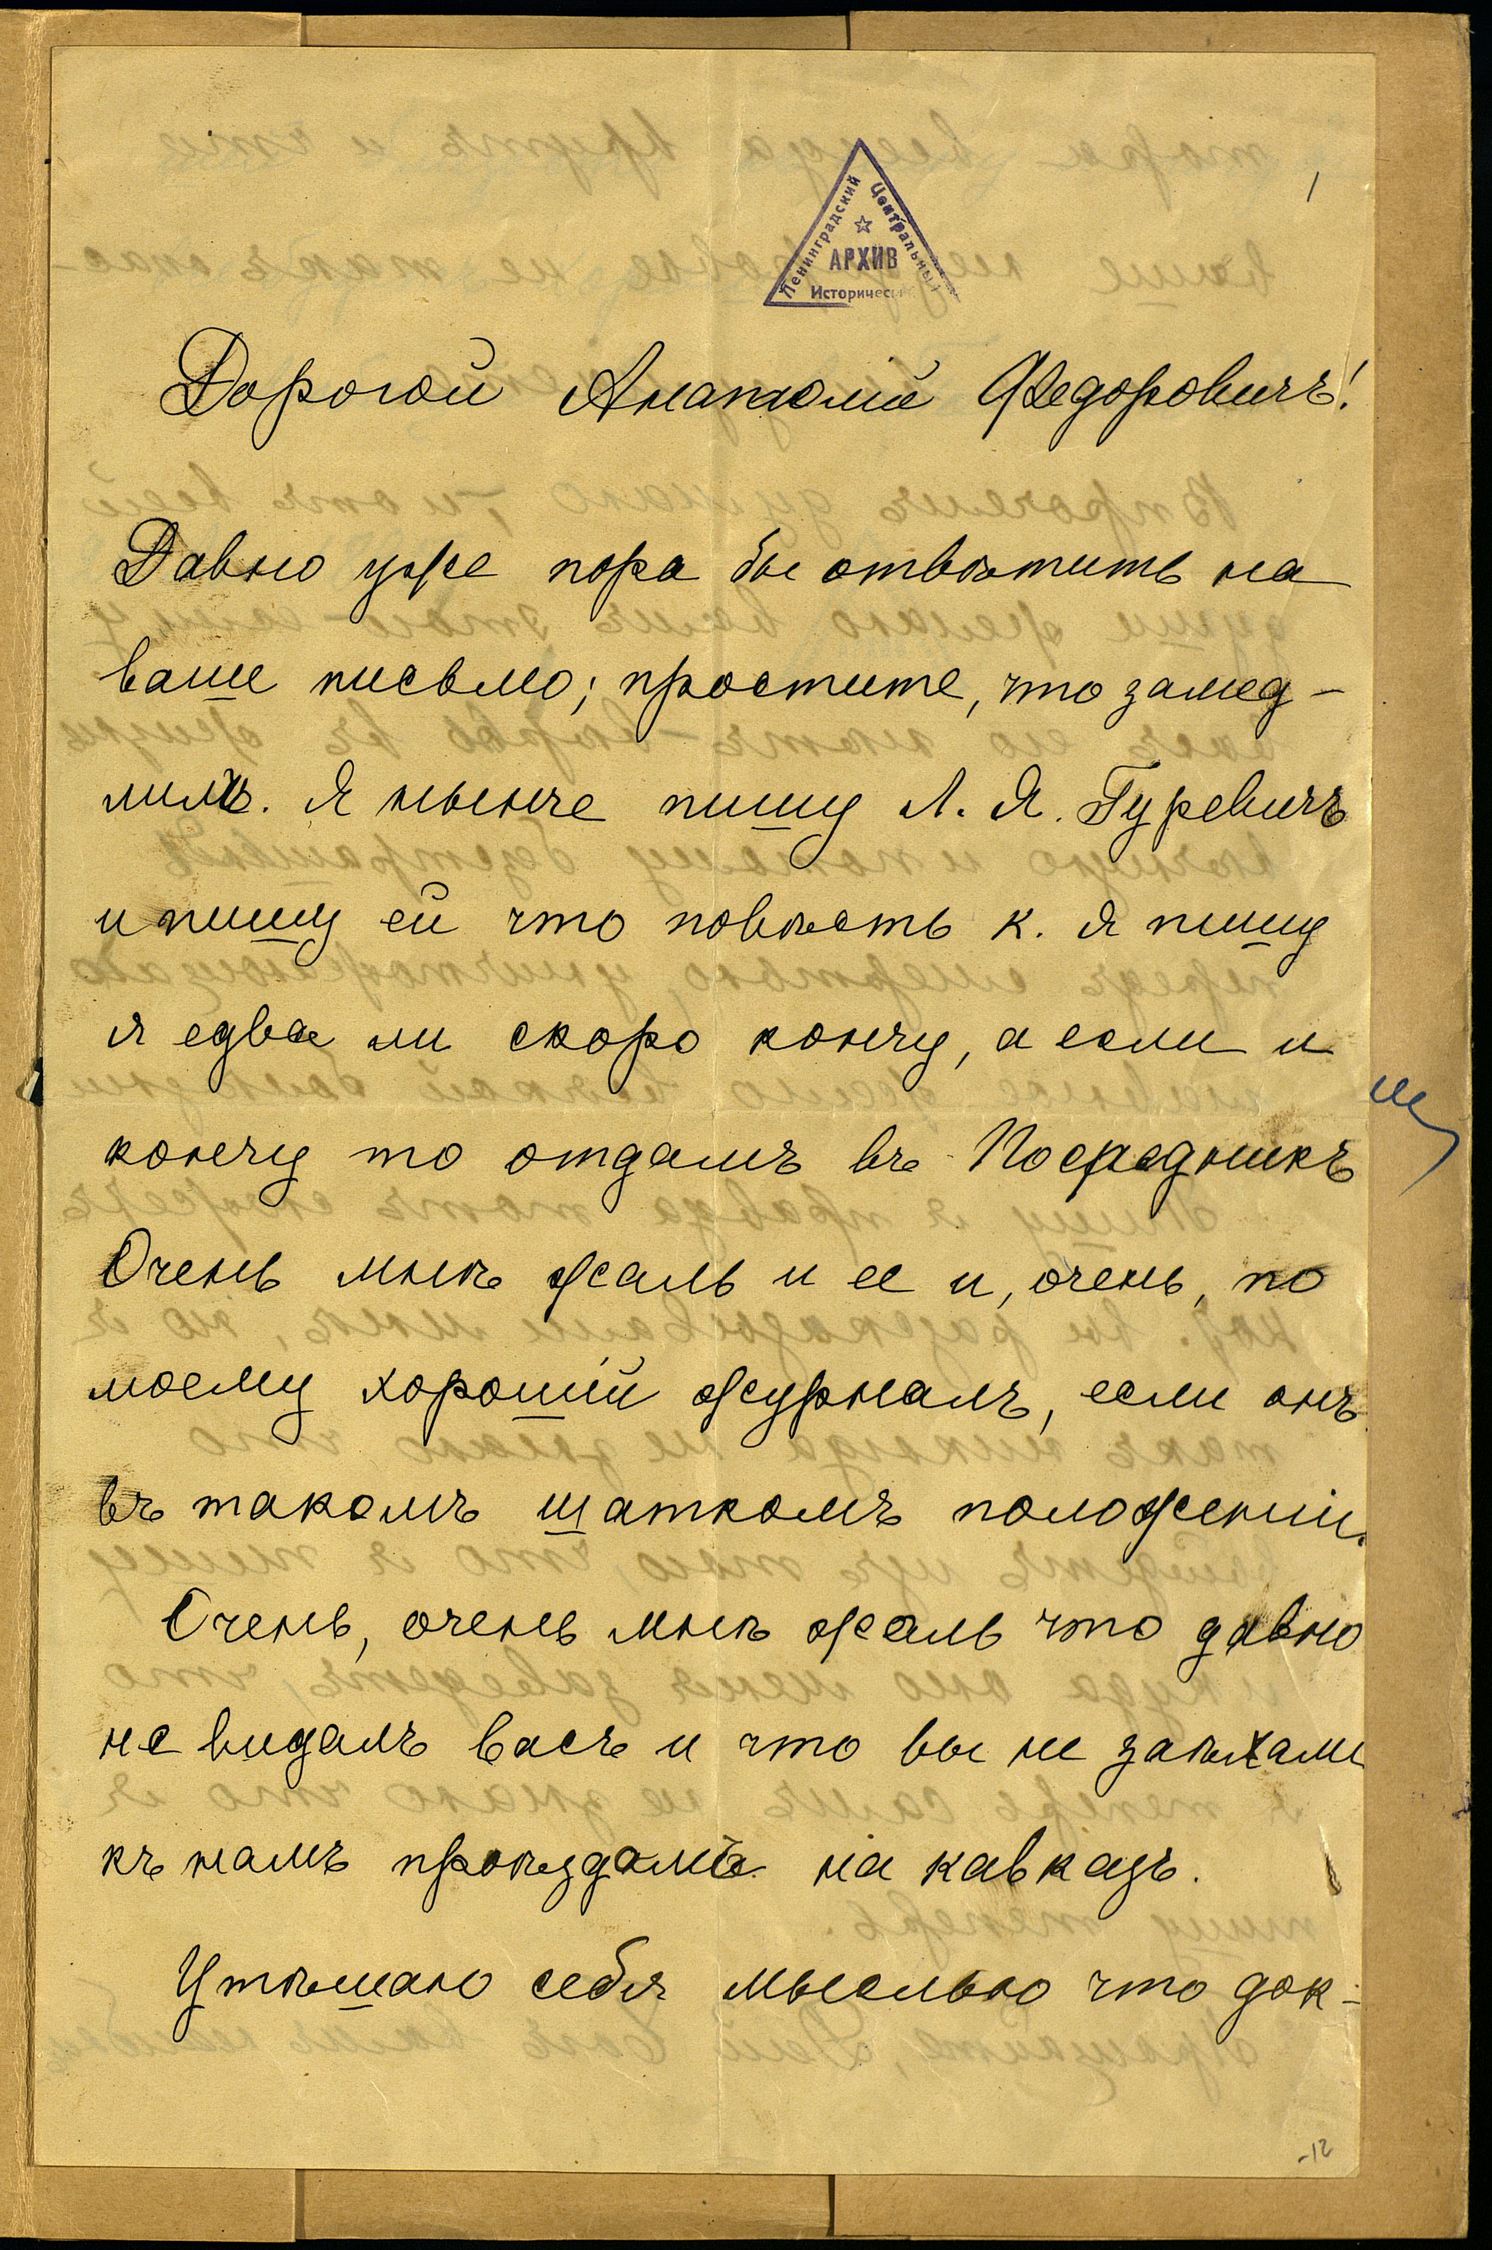 1
Ленинградский Центральный
АРХИВ
Исторический
Дорогой Анатолій Федоровичъ!
Давно уже пора бы отвѣтить на
ваше письмо; простите, что замед-
лилъ. Я нынче пишу Л. Я. Гуревичъ
и пишу ей что повѣсть к. я пишу
я едва ли скоро кончу, а если и
кончу то отдамъ въ Посредникъ
Очень мнѣ жаль и ее и, очень, по
моему хорошій журналъ, если онъ
въ такомъ шаткомъ положеніи.
Очень, очень мнѣ жаль что давно
не видалъ васъ и что вы не заѣхали
къ намъ проѣздомъ на кавказъ.
Утѣшаю себя мыслью что док-
-12